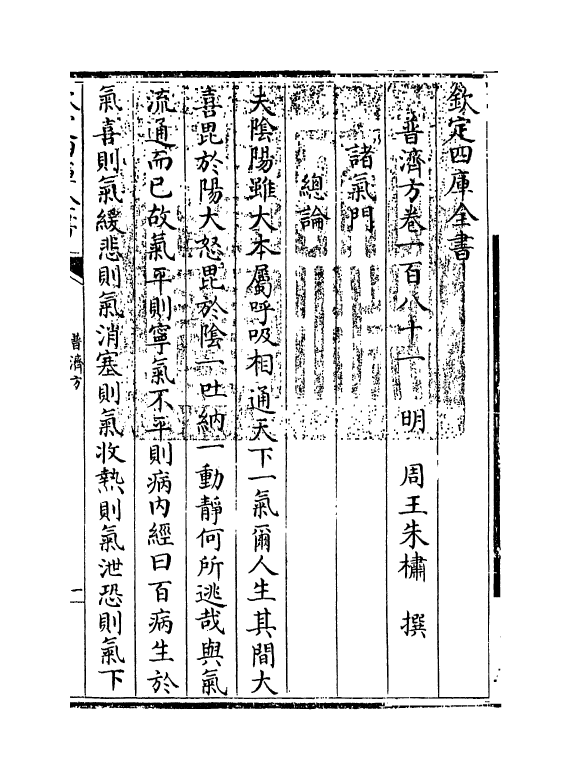 欽定四庫全書
普濟方卷一百八十一　明　周王朱橚　撰
諸氣門
總論
夫陰陽雖大本屬呼吸相通天下一氣爾人生其間大
喜毘於陽大怒毘於陰一吐納一動靜何所逃哉與氣
流通而已故氣平則寧氣不平則病内經曰百病生於
氣喜則氣緩悲則氣消塞則氣收熱則氣泄恐則氣下
普濟方